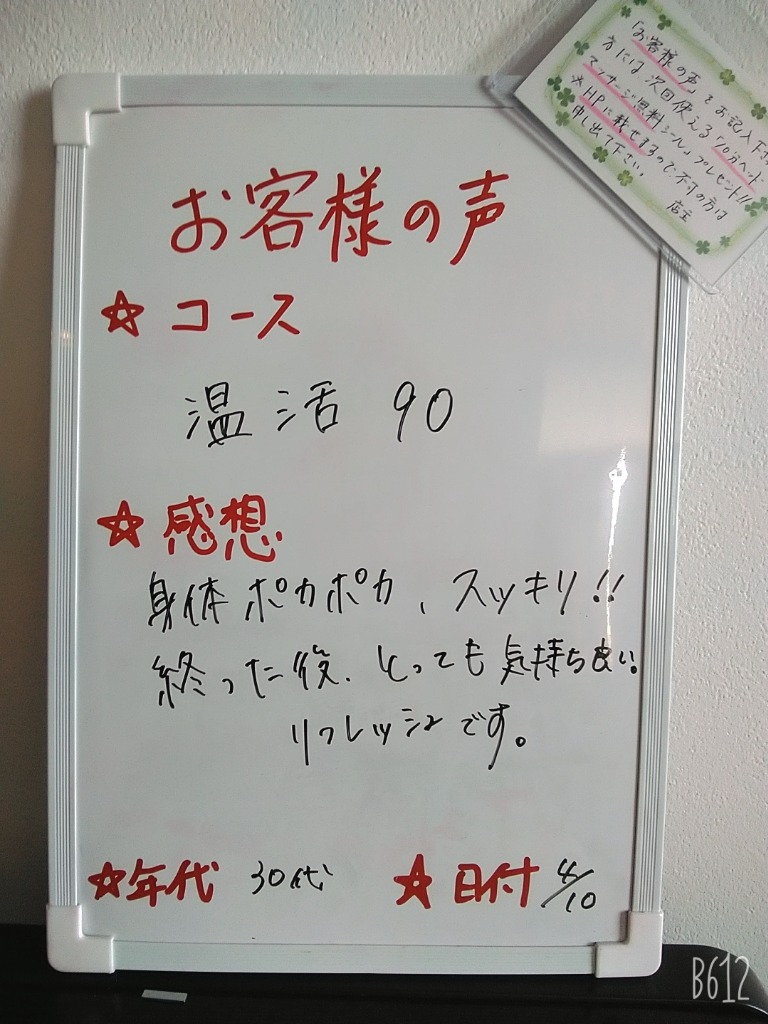 「お客様の声」をお記入下さ
方には次回使える「10分ヘッド
マッサージ無料シール」プレゼント!!
※HPに載せますので、不可の方は
申し出て下さい。
店主
お客様の声
☆コース
温活 90
☆感想
身体ポカポカ、スッキリ!!
終った後、とっても気持ち良い。
リフレッシュです。
☆年代 30代 ☆日付 4/10
B612